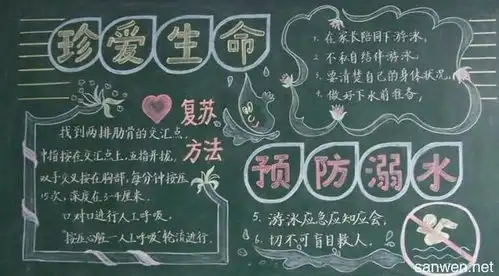 珍爱生命
复苏方法
找到两排肋骨的交汇点,
中指按在交汇点上,五指并拢,
双手交叉按在胸部,每分钟按压
15次,深度在3-4厘米.
口对口进行人工呼吸.
"按压心脏-人工呼吸"轮流进行.
1. 在家长陪同下游泳.
2. 不私自结伴游泳.
3. 要清楚自己的身体状况.
4. 做好下水前准备.
预防溺水
5. 游泳应急应知应会.
6. 切不可盲目救人.
sanwen.net